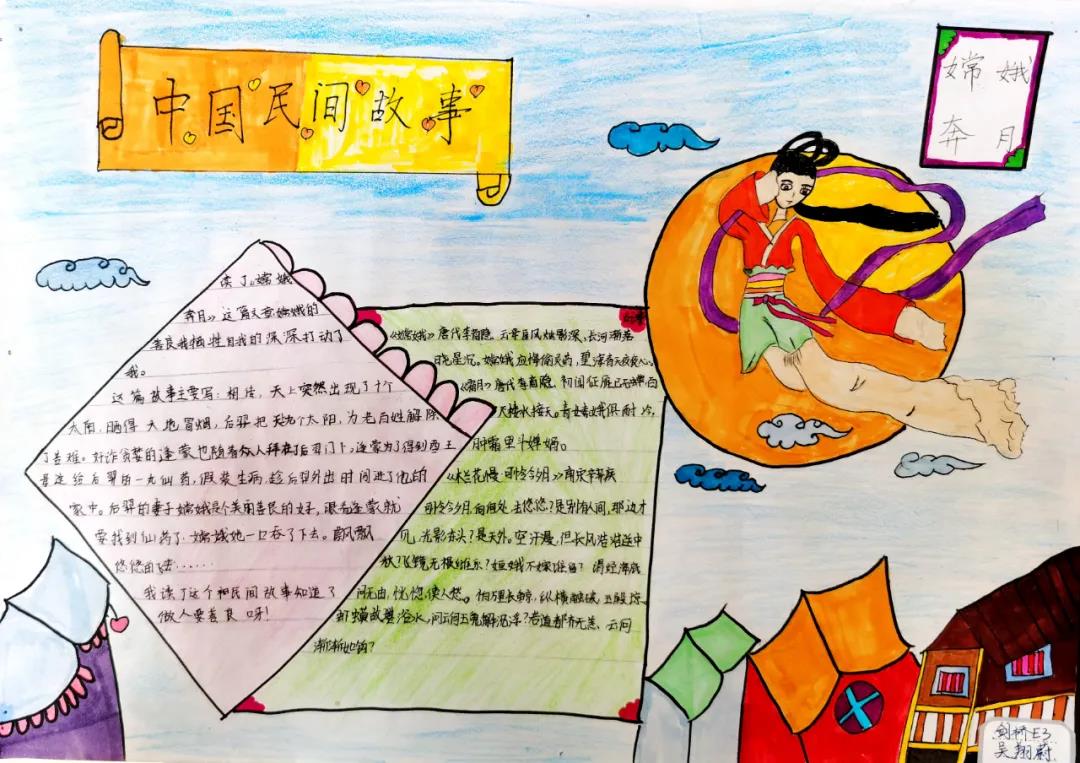 中国民间故事
嫦娥
奔月
读了《嫦娥
奔月》这篇文章嫦娥的
善良我牺牲自我的深深打动了
我。
这篇故事主要写：相传，天上突然出现了十个
太阳，晒得大地冒烟，后羿把九个太阳，为老百姓解除
了苦难。奸诈贪婪的逢蒙也随着众人拜在后羿门下。逢蒙为了得到西王
母送给后羿的一丸仙药，假装生病，趁后羿外出时间进了他的
家中。后羿的妻子嫦娥是个美丽善良的女子，眼看逢蒙就
要找到仙药了，嫦娥她一口吞了下去。飘飘
悠悠的
我读了这个民间故事知道了
做人要善良呀！
《嫦娥》唐代李商隐 云母屏风烛影深，长河渐落
晓星沉。嫦娥应悔偷灵药，碧海青天夜夜心。
《霜月》唐代李商隐 初闻征雁已无蝉，百
尺楼水接天。青女嫦娥俱耐冷，
月中霜里斗婵娟。
《木兰花慢·可怜今夕月》南宋辛弃疾
可怜今夕月，向何处、去悠悠？是别有人间，那边才
见，光影东头？是天外。空汗漫，但长风浩浩送中
秋？飞镜无根谁系？姮娥不嫁谁留？谓经海底
问无由，恍惚使人愁。怕万里长鲸，纵横触破，玉殿琼
虾蟆故堪浴水，问云何玉兔解沉浮？若道都齐无恙，云何
渐渐如钩？
剑桥E3
吴翔蔚